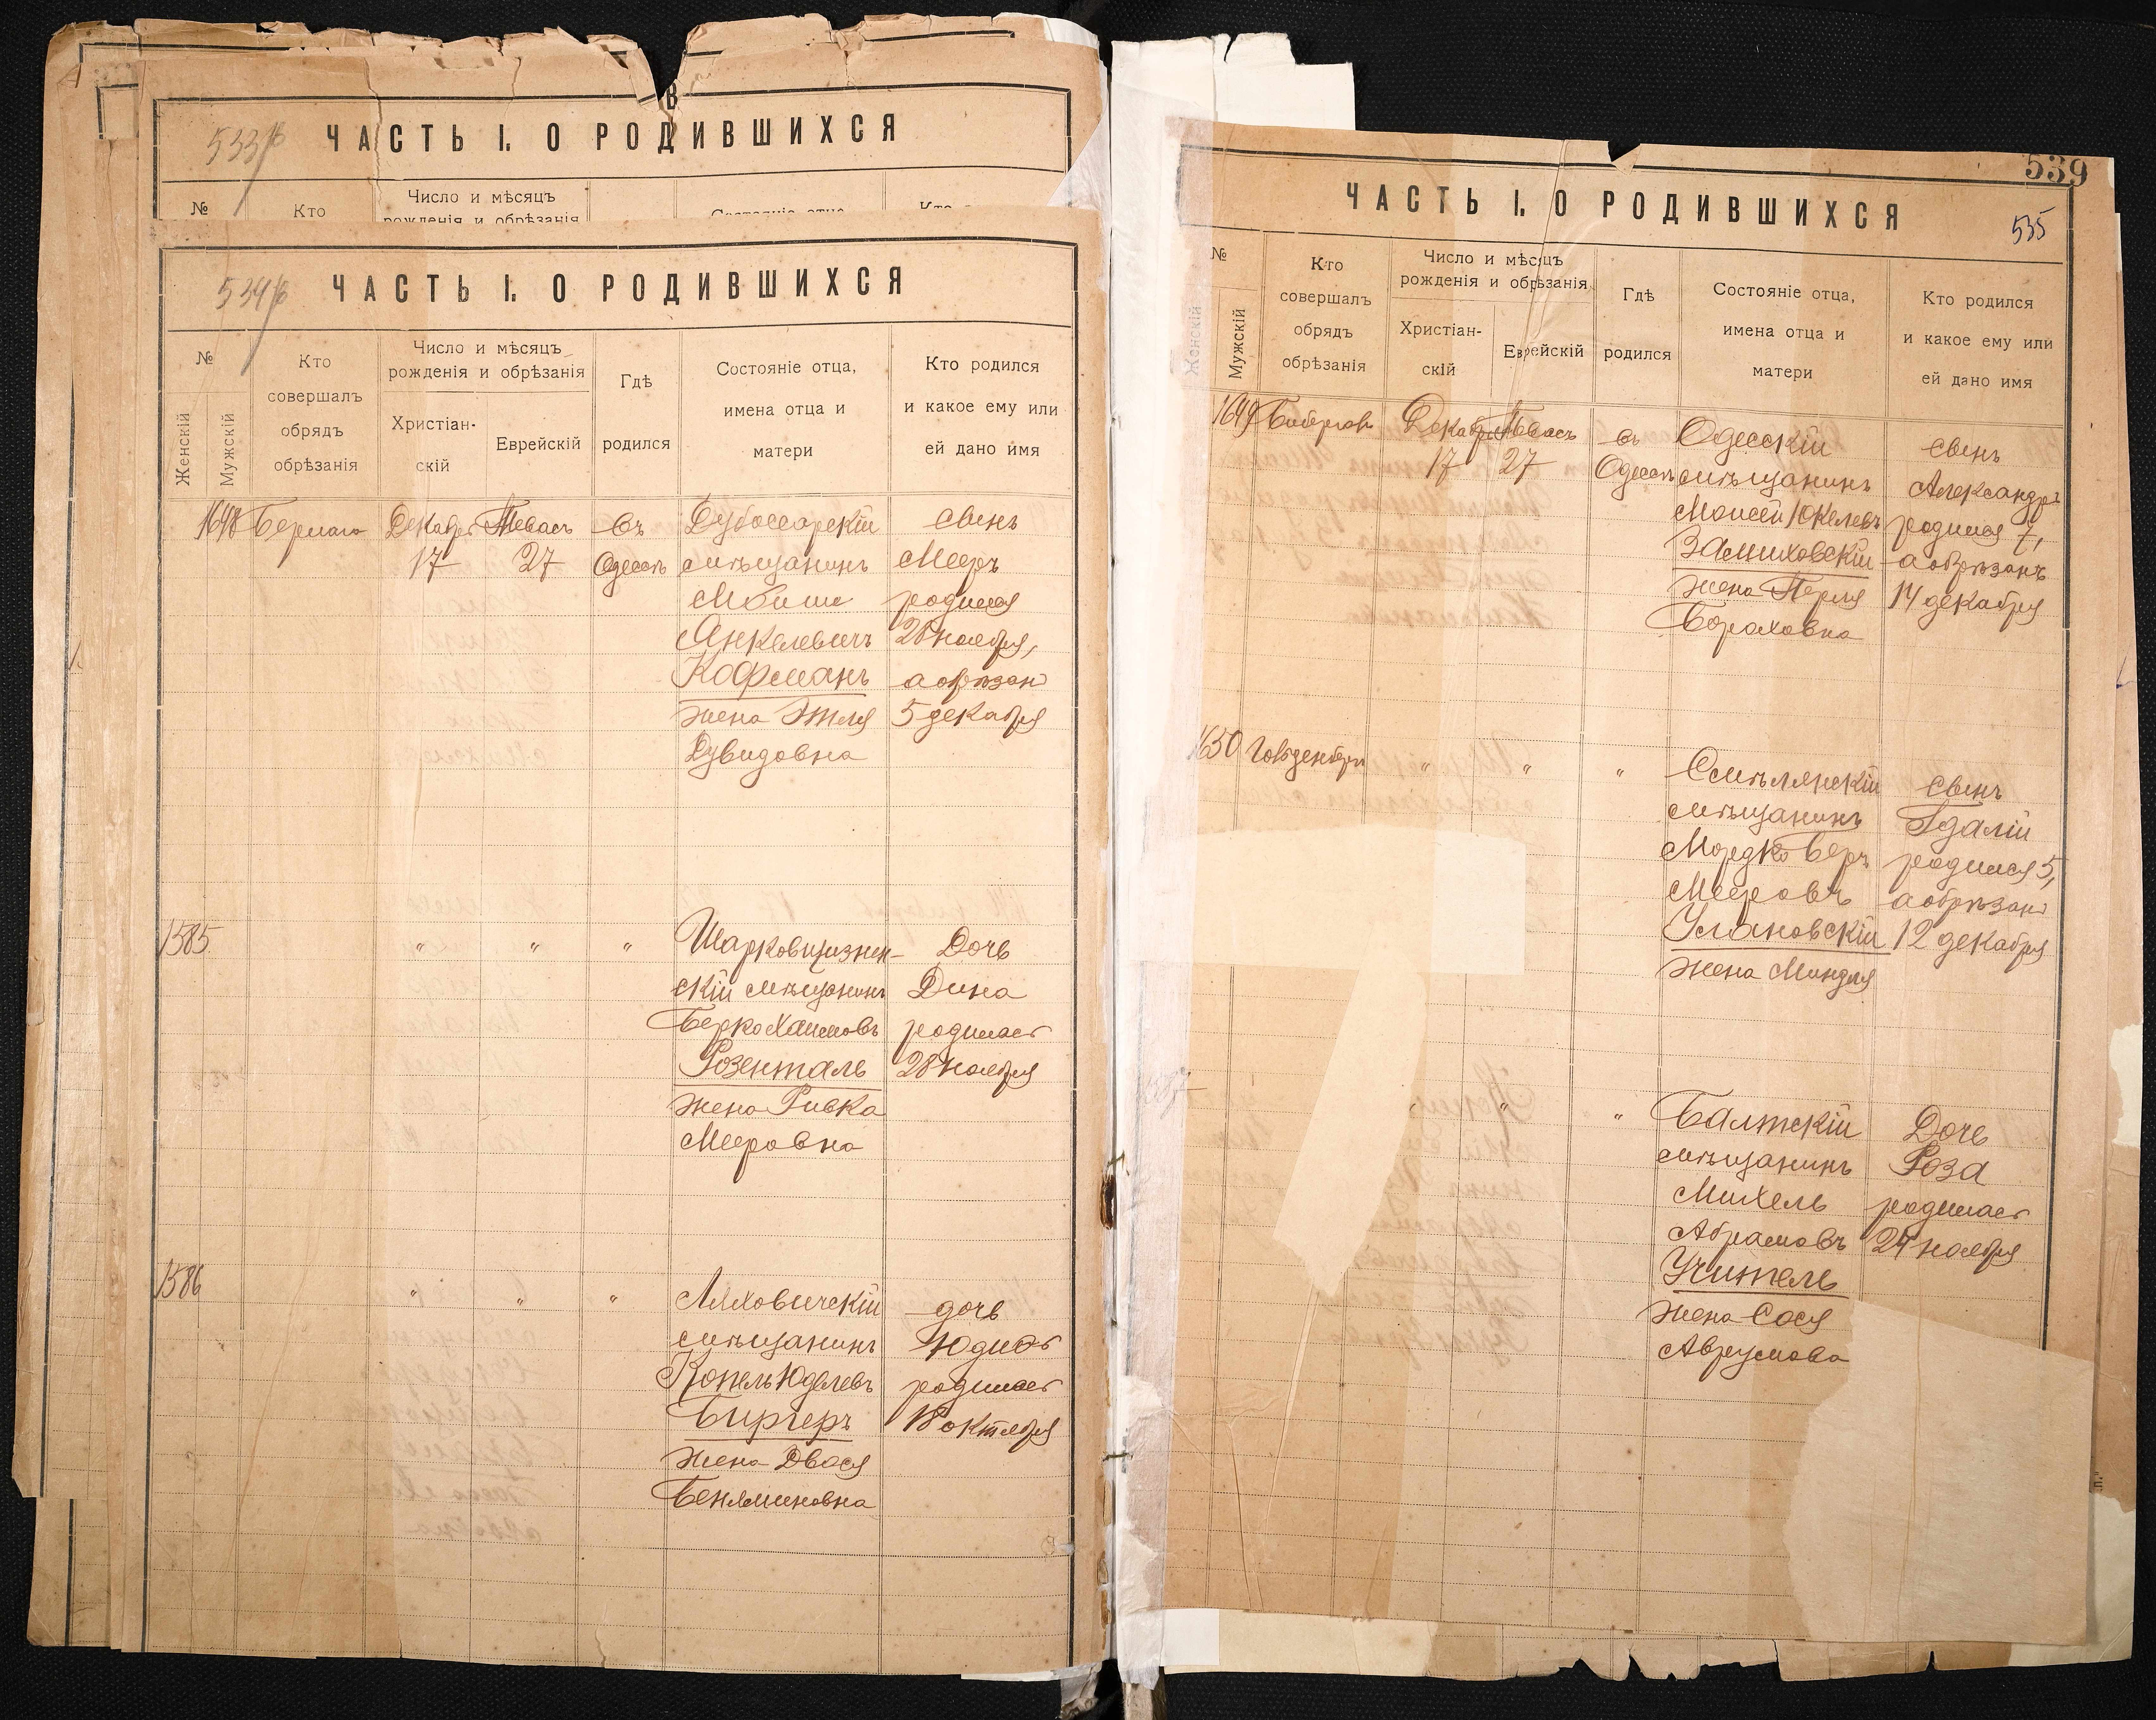 В
533 об
ЧАСТЬ I. О РОДИВШИХСЯ
№
Кто
Число и мѣсяцъ
рожденія и обрѣзанія
Состояніе отца
534 об
ЧАСТЬ I. О РОДИВШИХСЯ
№
Женскій
Мужскій
Кто
совершалъ
обрядъ
обрѣзанія
Число и мѣсяцъ
рожденія и обрѣзанія
Христіан-
скій
Еврейскій
Гдѣ
родился
Состояніе отца,
имена отца и
матери
Кто родился
и какое ему или
ей дано имя
1648 Декабря Тевасъ въ Дубоссарскій сынъ
17 27 Одессѣ мѣщанинъ Мееръ
родился
Анкелевичъ 28 ноября,
Кофманъ а обрѣзанъ
жена Этля 5 декабря
Дувидовна
1585 " " " Шарковщизнен- Дочь
скій мѣщанинъ Дина
Берко Хаимовъ родилась
Розенталь 28 ноября
жена Ривка
Мееровна
1586 " " " Ляховичскій дочь
мѣщанинъ Юдиѳь
Копель Юделевъ родилась
Биргеръ 18 октября
жена Двося
Беняминовна
539
535
ЧАСТЬ I. О РОДИВШИХСЯ
№
Женскій
Мужскій
Кто
совершалъ
обрядъ
обрѣзанія
Число и мѣсяцъ
рожденія и обрѣзанія
Христіан-
скій
Еврейскій
Гдѣ
родился
Состояніе отца,
имена отца и
матери
Кто родился
и какое ему или
ей дано имя
1649 Декабря Тевасъ въ Одесскій сынъ
17 27 Одессѣ мѣщанинъ Александръ
Моисей Юкелевъ родился 7,
Замиховскій а обрѣзанъ
жена Перля 14 декабря
Бораховна
1650 Гольденберг " " " Смѣлянскій сынъ
мѣщанинъ Гдалій
Мордко Беръ родился 5,
Мееровъ а обрѣзанъ
Улановскій 12 декабря
жена Миндля
1587 " " " Балтскій Дочь
мѣщанинъ Роза
Михель родилась
Абрамовъ 24 ноября
Учитель
жена Сося
Аврумова